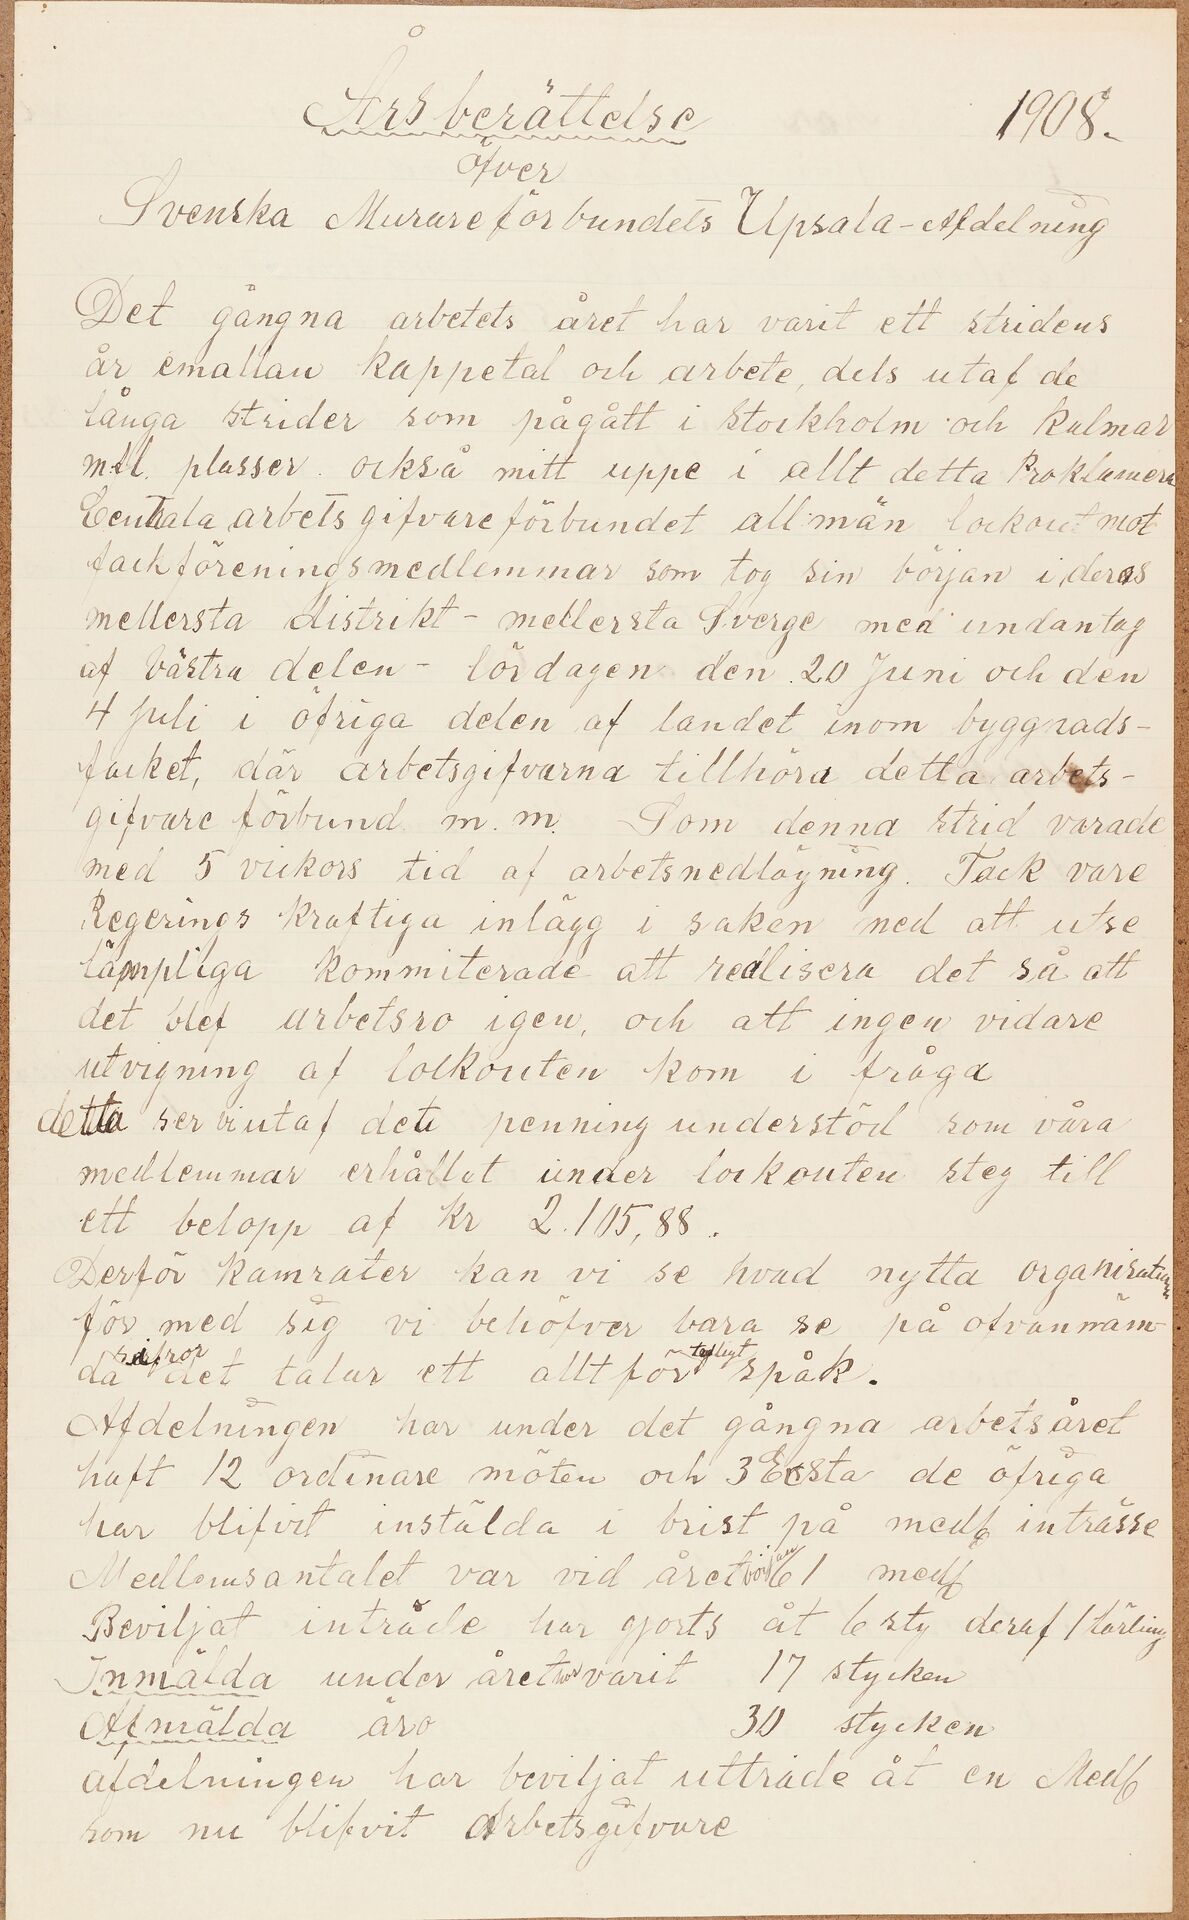 Årsberättelse 1908.
öfver
Svenska Murareförbundets Upsala-Afdelning
Det gångna arbetets året har varit ett stridens
år emallan kappetal och arbete, dels utaf de
långa strider som pågått i Stockholm och Kalmar
m.fl. plasser också mitt uppe i allt detta Proklamera
Centrala arbetsgifvareförbundet allmän lockout mot
fackföreningsmedlemmar som tog sin början i deras
mellersta distrikt - mellersta Sverge med undantag
af västra delen - lördagen den 20 Juni och den
4 juli i öfriga delen af landet inom byggnads-
facket, där arbetsgifvarna tillhöra detta arbets-
gifvare förbund m. m. Som denna strid varade
med 5 vickors tid af arbetsnedläggning. Tack vare
Regerings kraftiga inlägg i saken med att utse
lämpliga kommiterade att realisera det så att
det blef arbetsro igen, och att ingen vidare
utvigning af lockouten kom i fråga
detta ser vi utaf det penning understöd som våra
medlemmar erhållet under lockouten steg till
ett belopp af kr 2.105,88.
Derför kamrater kan vi se hvad nytta organisation
för med sig vi behöfver bara se på ofvannäm-
da siffror det talar ett alltför tydligt spåk.
Afdelningen har under det gångna arbetsåret
haft 12 ordinare möten och 3 Exsta de öfriga
har blifvit instälda i brist på medl inträsse
Medlemsantalet var vid året början 61 medl
Beviljat inträde har gjorts åt 6 sty deraf 1 lärling
Inmälda under året har varit 17 stycken
Afmälda äro 30 stycken
afdelningen har beviljat utträde åt en Medl
som nu blifvit Arbetsgifvare